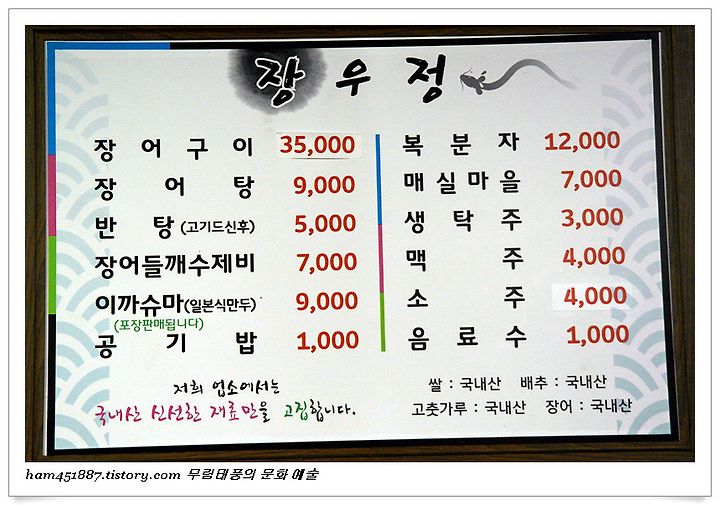 장우정
장어구이 35,000
장어탕 9,000
반탕(고기드신후) 5,000
장어들깨수제비 7,000
이까슈마(일본식만두) 9,000
(포장판매됩니다)
공기밥 1,000
저희 업소에서는
국내산 신선한 재료만을 고집합니다.
복분자 12,000
매실마을 7,000
생탁주 3,000
맥주 4,000
소주 4,000
음료수 1,000
쌀 : 국내산 배추 : 국내산
고춧가루 : 국내산 장어 : 국내산
ham451887.tistory.com 무림태풍의 문화 예술